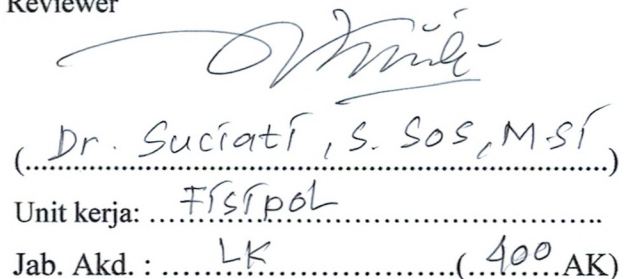 Reviewer
(Dr. Suciati, S. Sos, M.Si)
Unit kerja: ...FISIPOL...
Jab. Akd. : ...LK...(...400 AK)